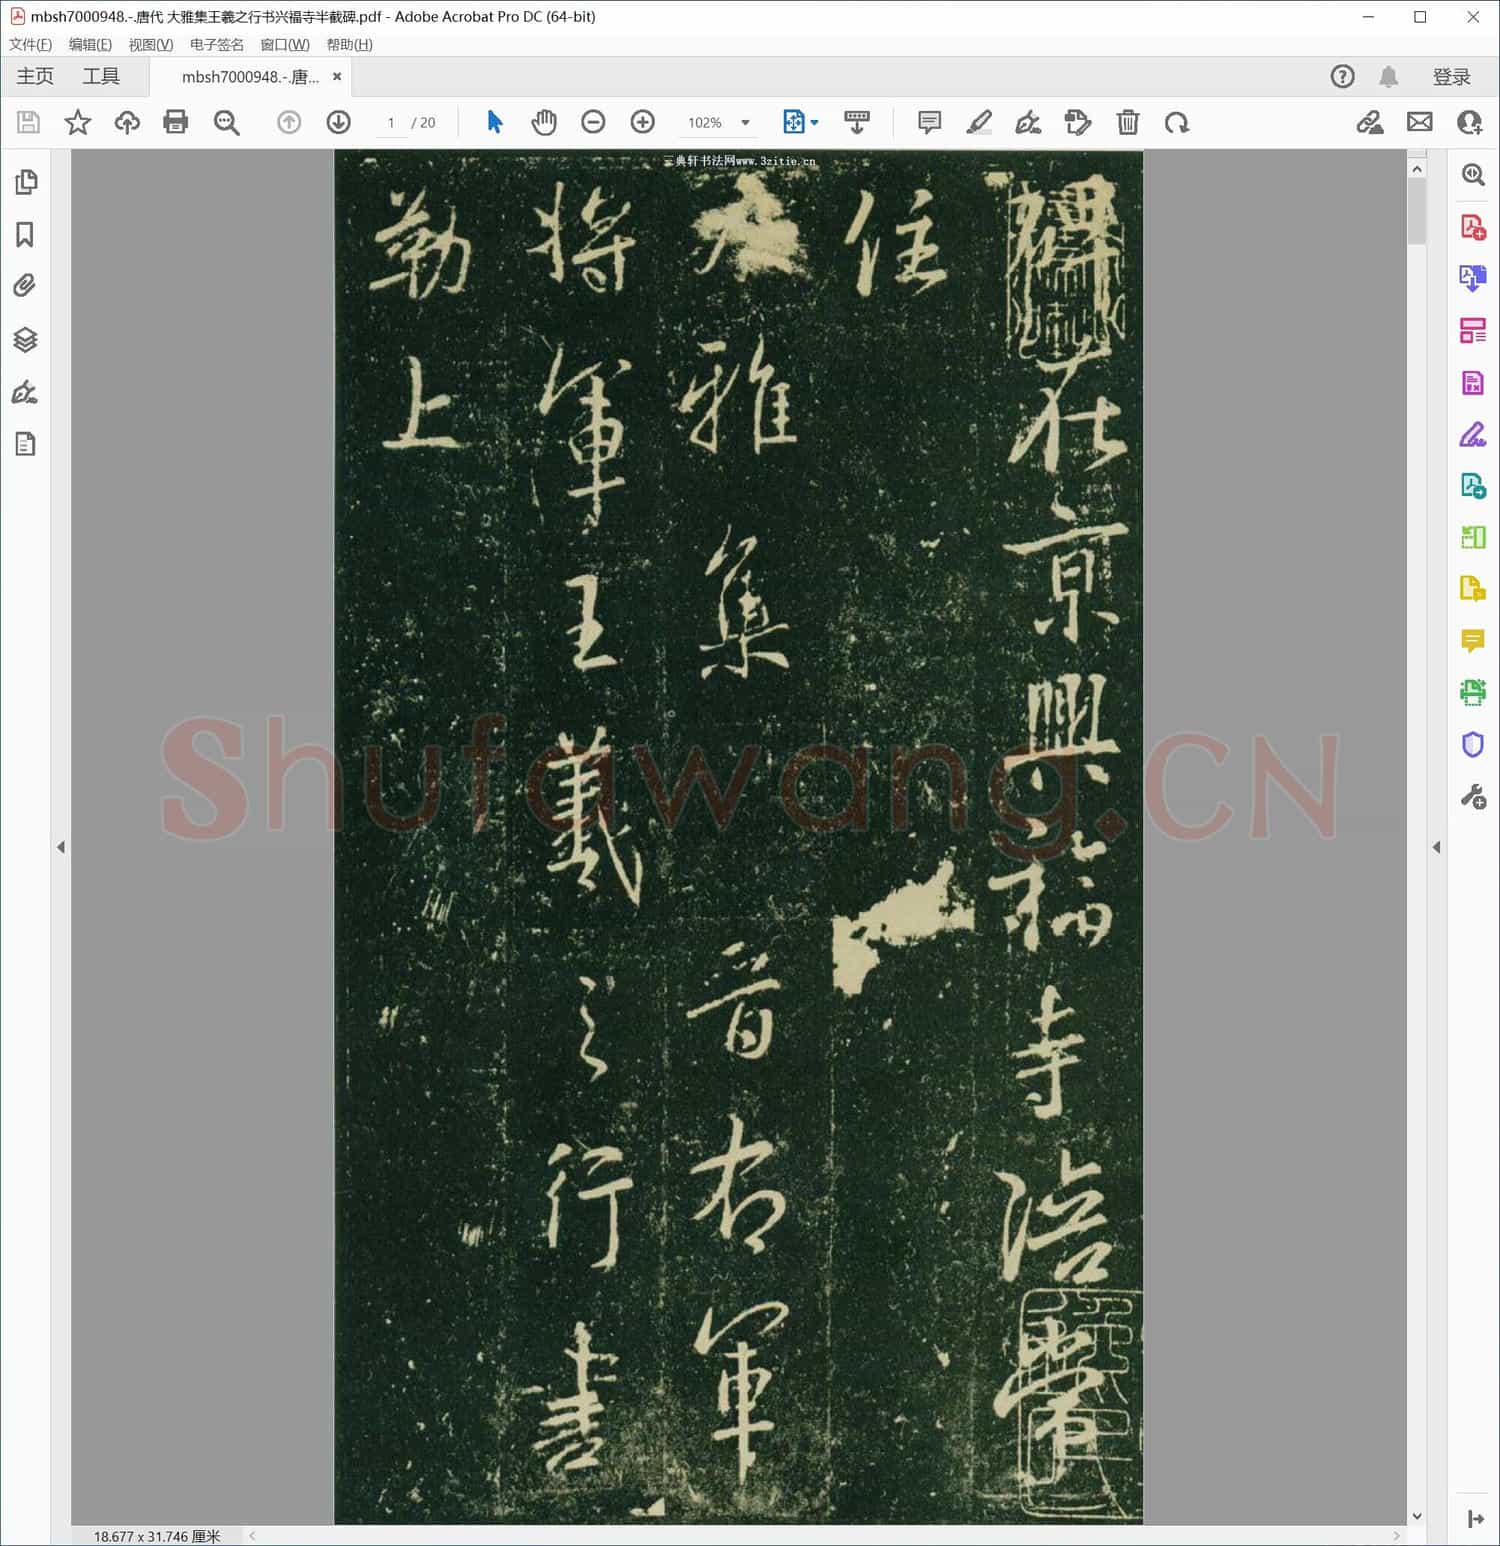 mbsh7000948.-.唐代 大雅集王羲之行书兴福寺半截碑.pdf - Adobe Acrobat Pro DC (64-bit)
文件(F) 编辑(E) 视图(V) 电子签名 窗口(W) 帮助(H)
主页 工具 mbsh7000948.-.唐... 登录
1 / 20 102%
三典轩书法网www.3zitie.cn
碑在京興福寺陪常
住
大雅集 晋右軍
将軍王羲之行書
勒上
Shufawang.CN
18.677 x 31.746 厘米